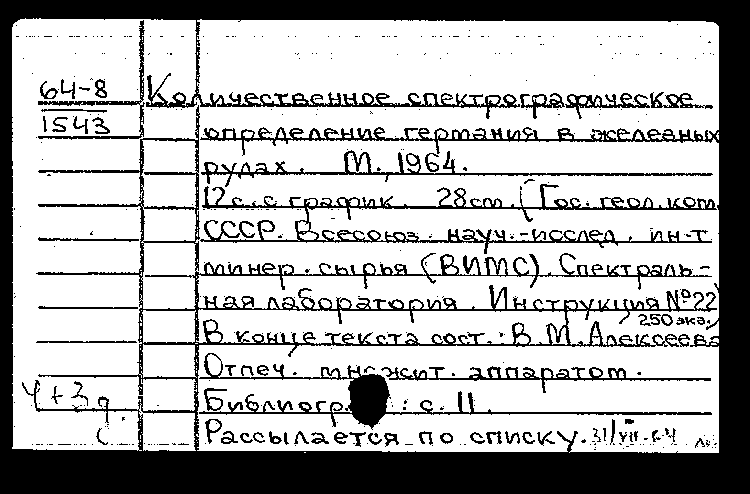 64-8 Количественное спектрографическое
1543 определение германия в железных
рудах. М., 1964.
12 с. с график. 28 см. (Гос. геол. ком.
СССР. Всесоюз. науч.-исслед. ин-т
минер. сырья (ВИМС). Спектраль-
ная лаборатория. Инструкция № 22)
250 экз.
В конце текста сост.: В. М. Алексеева
Отпеч. множит. аппаратом.
Библиогр.: с. 11.
Рассылается по списку. 31/VII-64